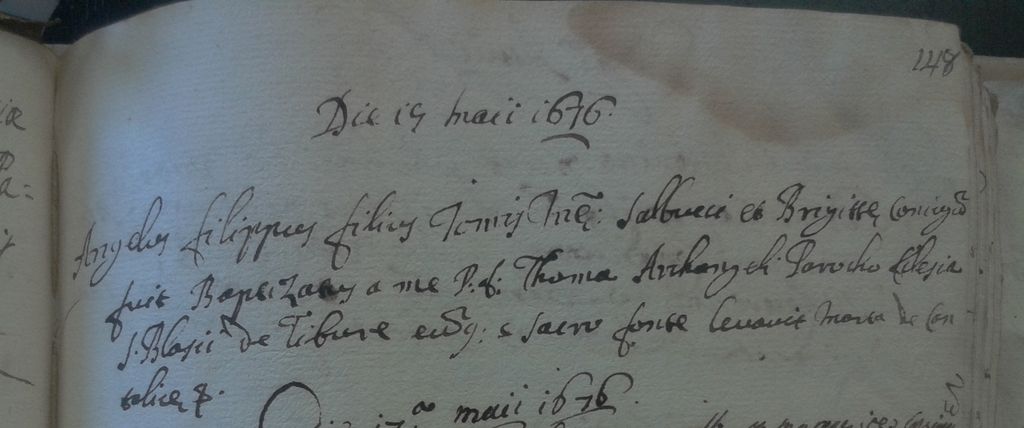 148
Die 15 maii 1676.
Angelus filippus filius Joannis Salbucci et Brigittę coniugū
fuit Baptizatus a me P. f. Thoma Archangeli Parocho Eclesia
S. Blasii de Tibure eūq; e sacro fonte levavit Marta de Can-
talicę
maii 1676.